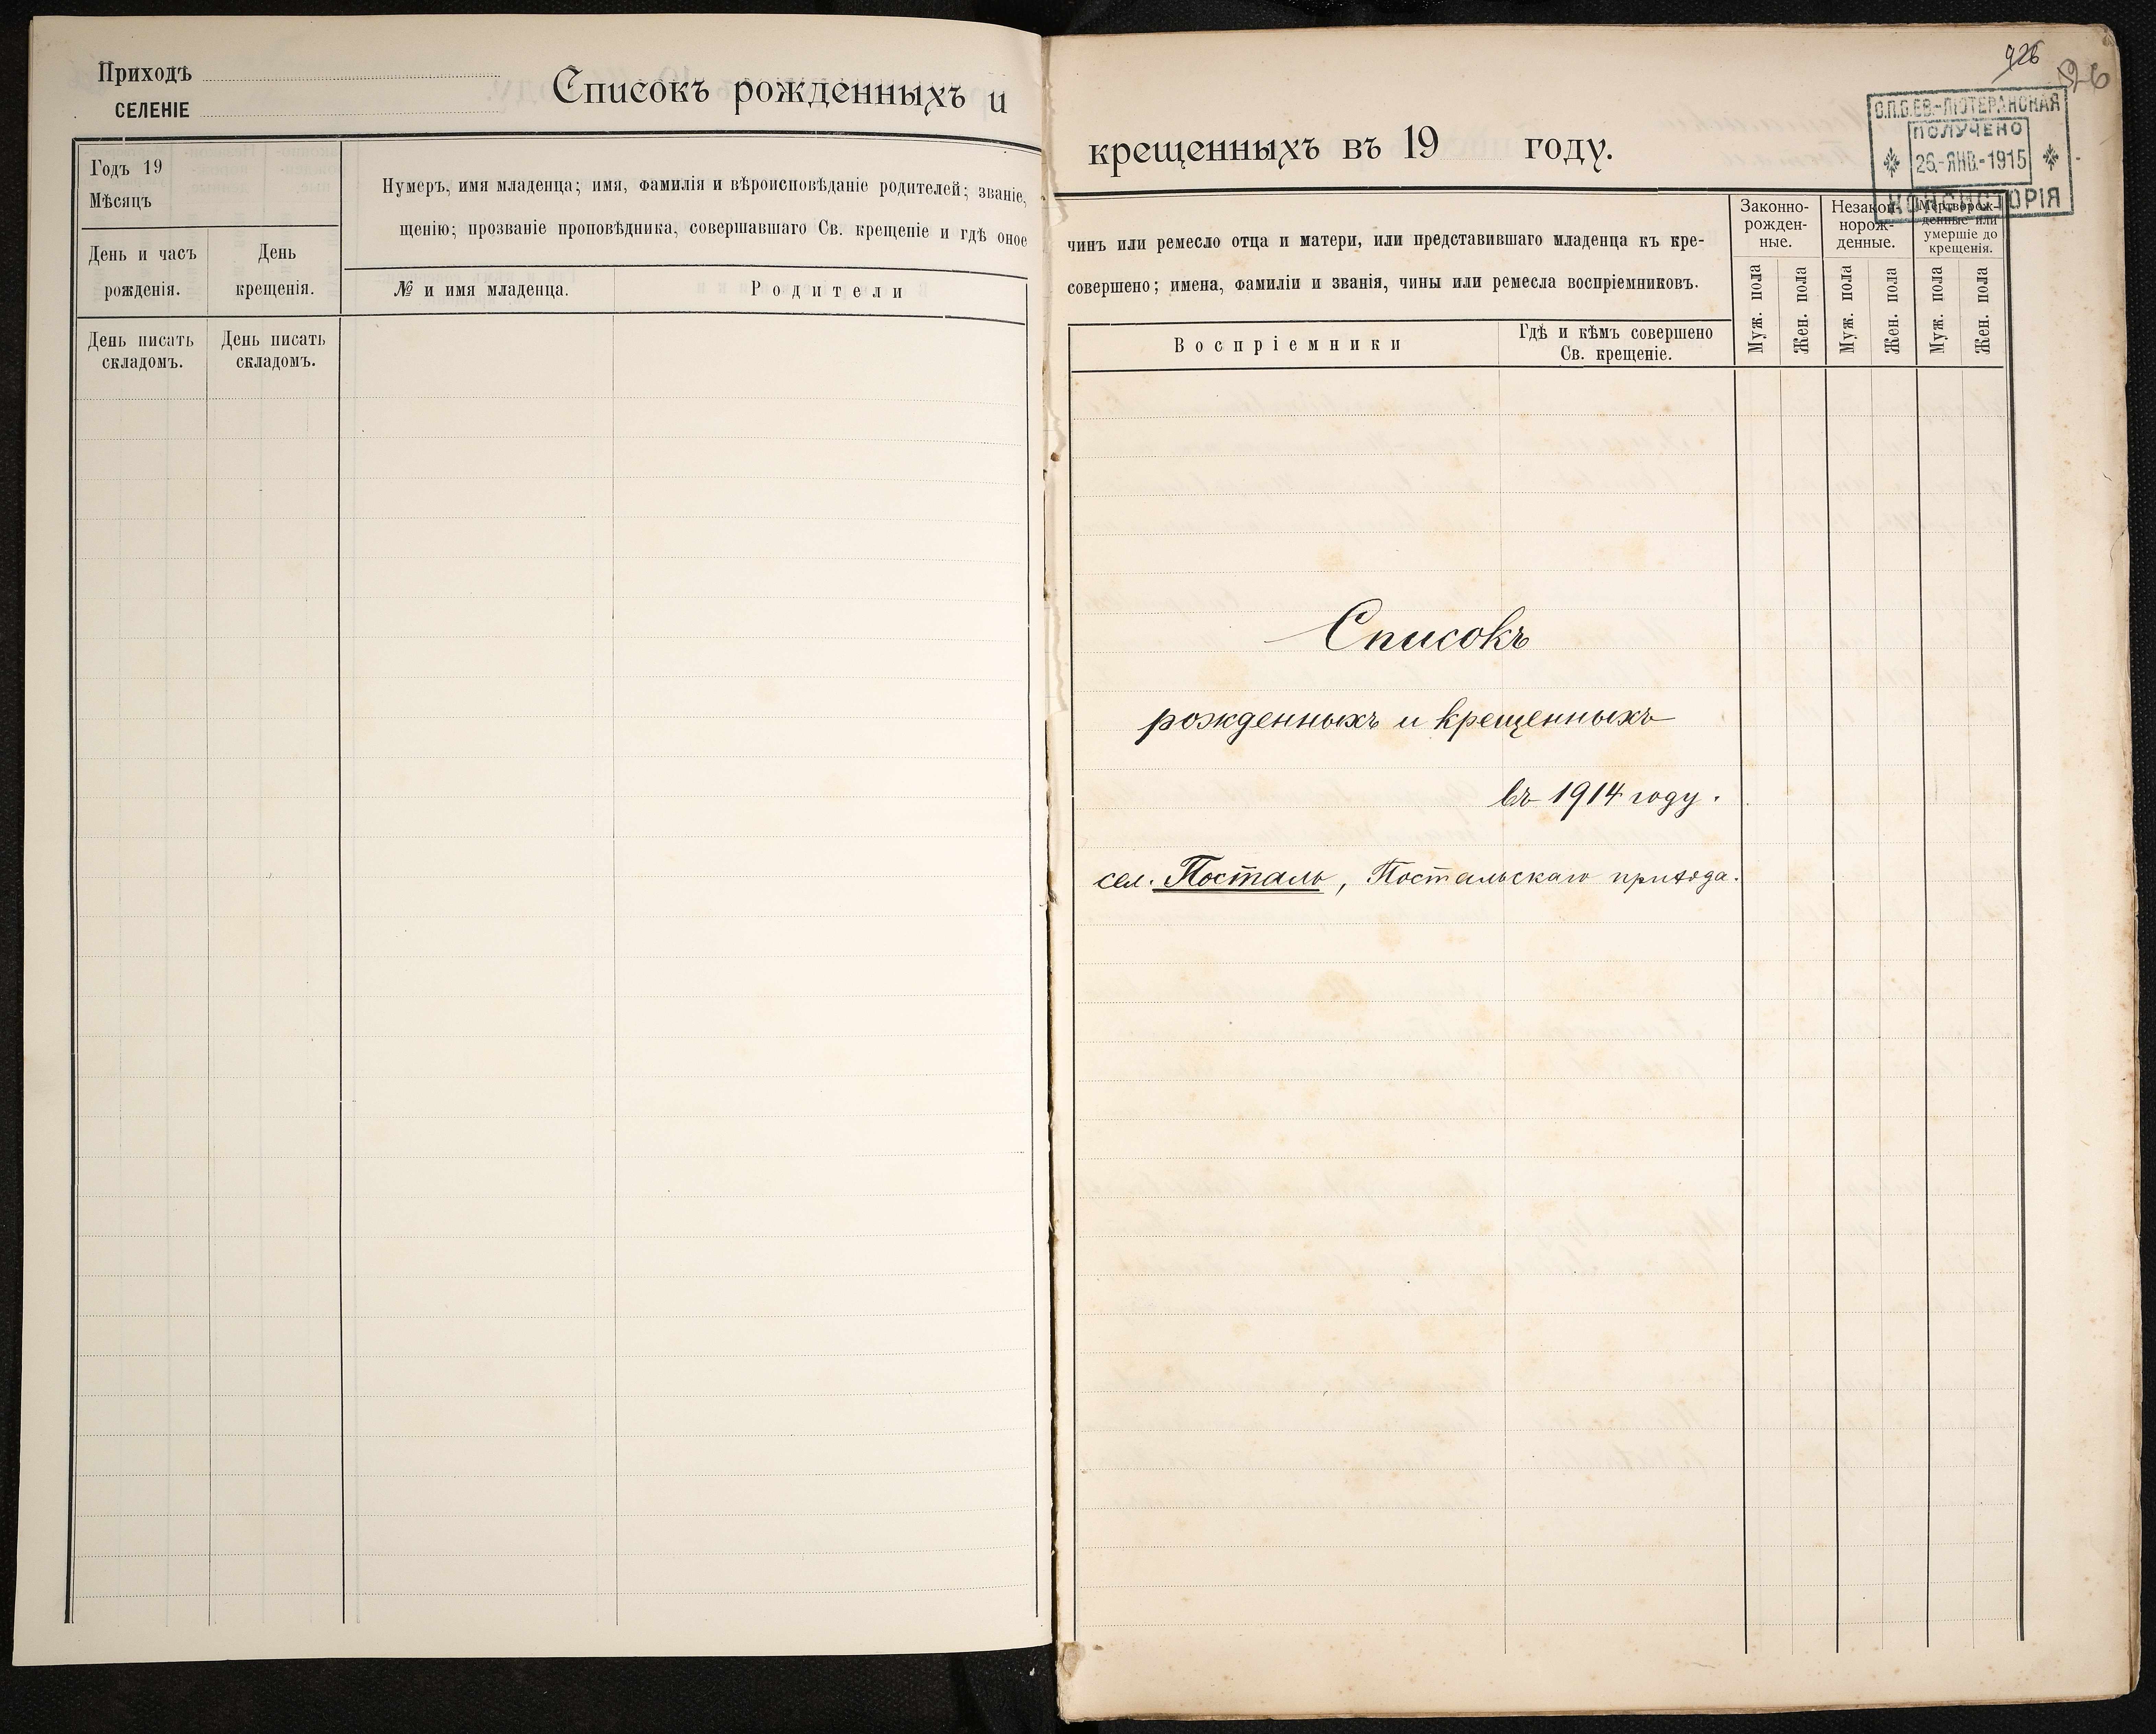 Приходъ
СЕЛЕНІЕ
Списокъ рожденныхъ и
Годъ 19
Мѣсяцъ
День и часъ
рожденія.
День
крещенія.
Нумеръ, имя младенца; имя, фамилія и вѣроисповѣданіе родителей; званіе,
щенію; прозваніе проповѣдника, совершавшаго Св. крещеніе и гдѣ оное
№ и имя младенца.
Родители
День писать
складомъ.
День писать
складомъ.
926
96
С.П.Б.ЕВ.-ЛЮТЕРАНСКАЯ
ПОЛУЧЕНО
26.-ЯНВ.-1915
КОНСИСТОРІЯ
крещенныхъ въ 19 году.
чинъ или ремесло отца и матери, или представившаго младенца къ кре-
совершено; имена, фамиліи и званія, чины или ремесла воспріемниковъ.
Воспріемники
Гдѣ и кѣмъ совершено
Св. крещеніе.
Законно-
рожден-
ные.
Незакон-
норож-
денные.
Мертворож-
денные или
умершіе до
крещенія.
Муж. пола
Жен. пола
Муж. пола
Жен. пола
Муж. пола
Жен. пола
Списокъ
рожденныхъ и крещенныхъ
въ 1914 году.
сел. Посталь, Постальскаго прихода.